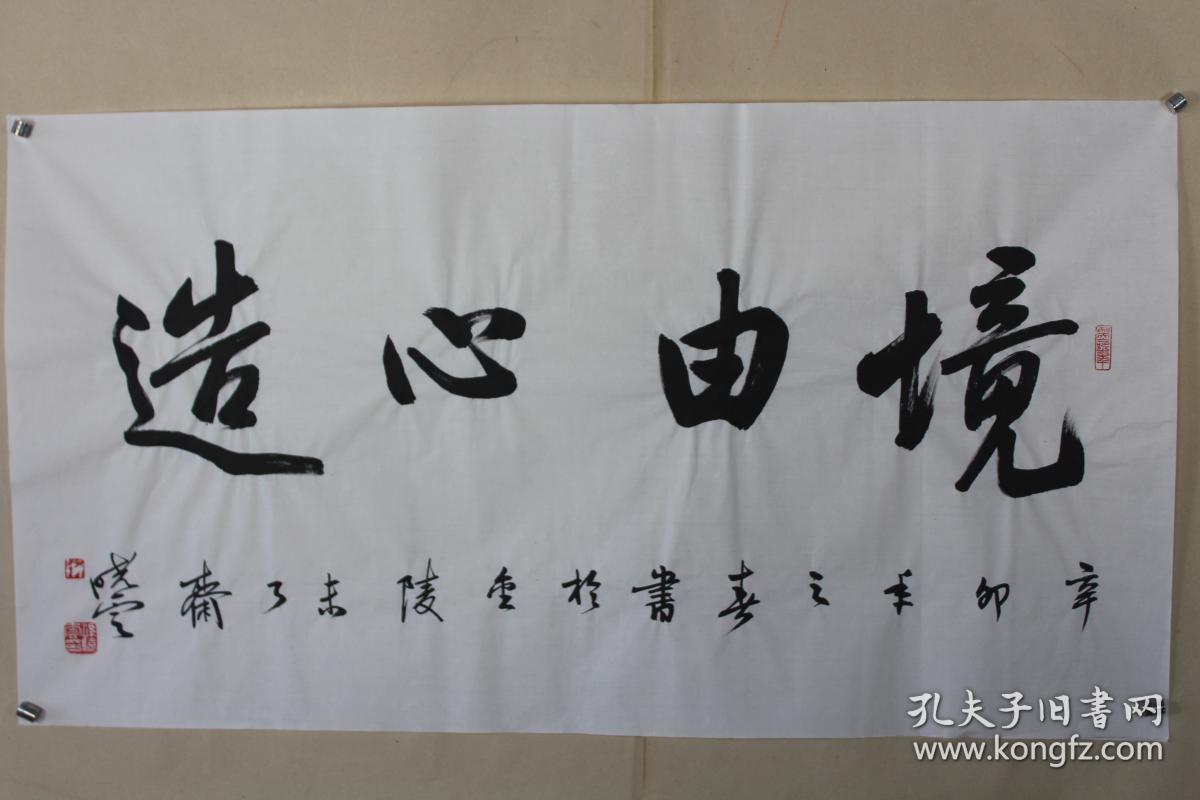 境由心造
辛卯年之春書於金陵未了齋
晓雲
孔夫子旧書网
www.kongfz.com